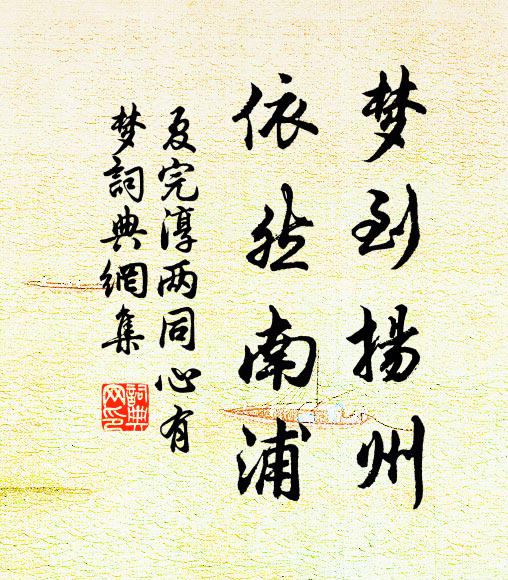 梦到揚州
依然南浦
夏完淳两同心有
梦詞典網集
詞典
网印